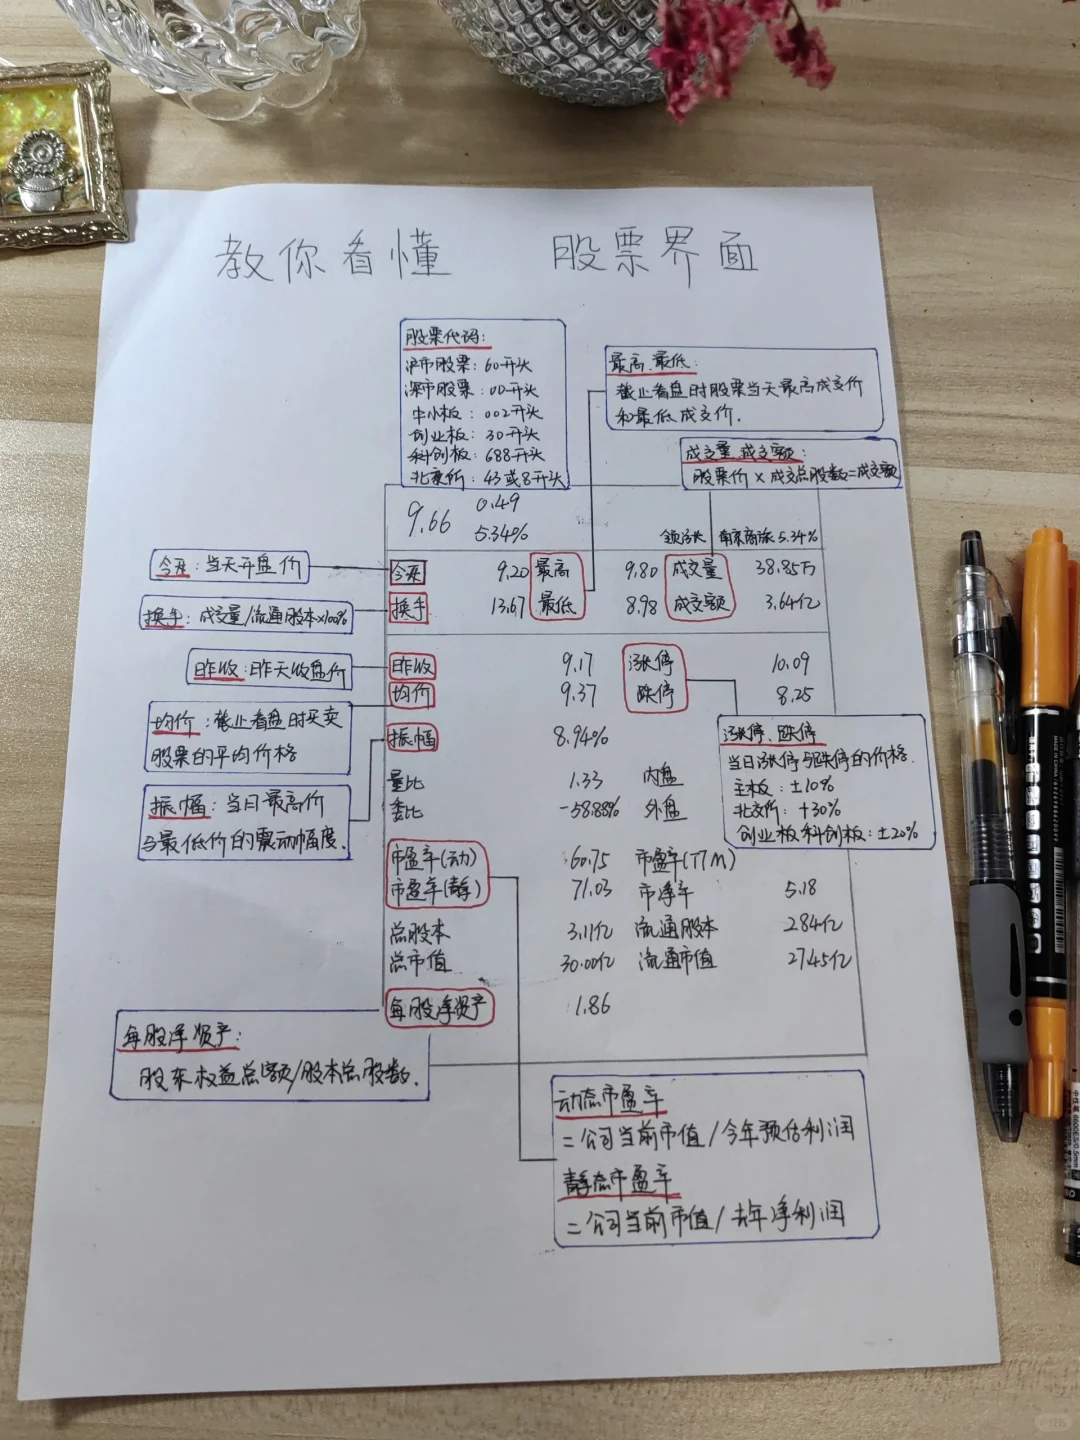 教你看懂 股票界面
股票代码:
沪市股票: 60开头
深市股票: 00开头
中小板: 002开头
创业板: 30开头
科创板: 688开头
北交所: 43或8开头
最高、最低:
截止看盘时股票当天最高成交价
和最低成交价.
成交量、成交额:
股票价×成交总股数=成交额
9.66
0.49
5.34%
领涨 南京商旅 5.34%
今开: 当天开盘价
今开 9.20 最高 9.80 成交量 38.85万
换手: 成交量/流通股本×100%
换手 13.67 最低 8.98 成交额 3.64亿
昨收: 昨天收盘价
昨收 9.17 涨停 10.09
均价 9.37 跌停 8.25
均价: 截止看盘时买卖
股票的平均价格
振幅 8.94%
涨停、跌停
当日涨停与跌停的价格.
主板: ±10%
北交所: +30%
创业板科创板: ±20%
振幅: 当日最高价
与最低价的震动幅度.
量比 1.33 内盘
委比 -58.88% 外盘
市盈率(动) 60.75 市盈率(TTM)
市盈率(静) 71.03 市净率 5.18
总股本 3.11亿 流通股本 2.84亿
总市值 30.00亿 流通市值 27.45亿
每股净资产 1.86
每股净资产:
股东权益总额/股本总股数.
动态市盈率
=公司当前市值/今年预估利润
静态市盈率
=公司当前市值/去年净利润